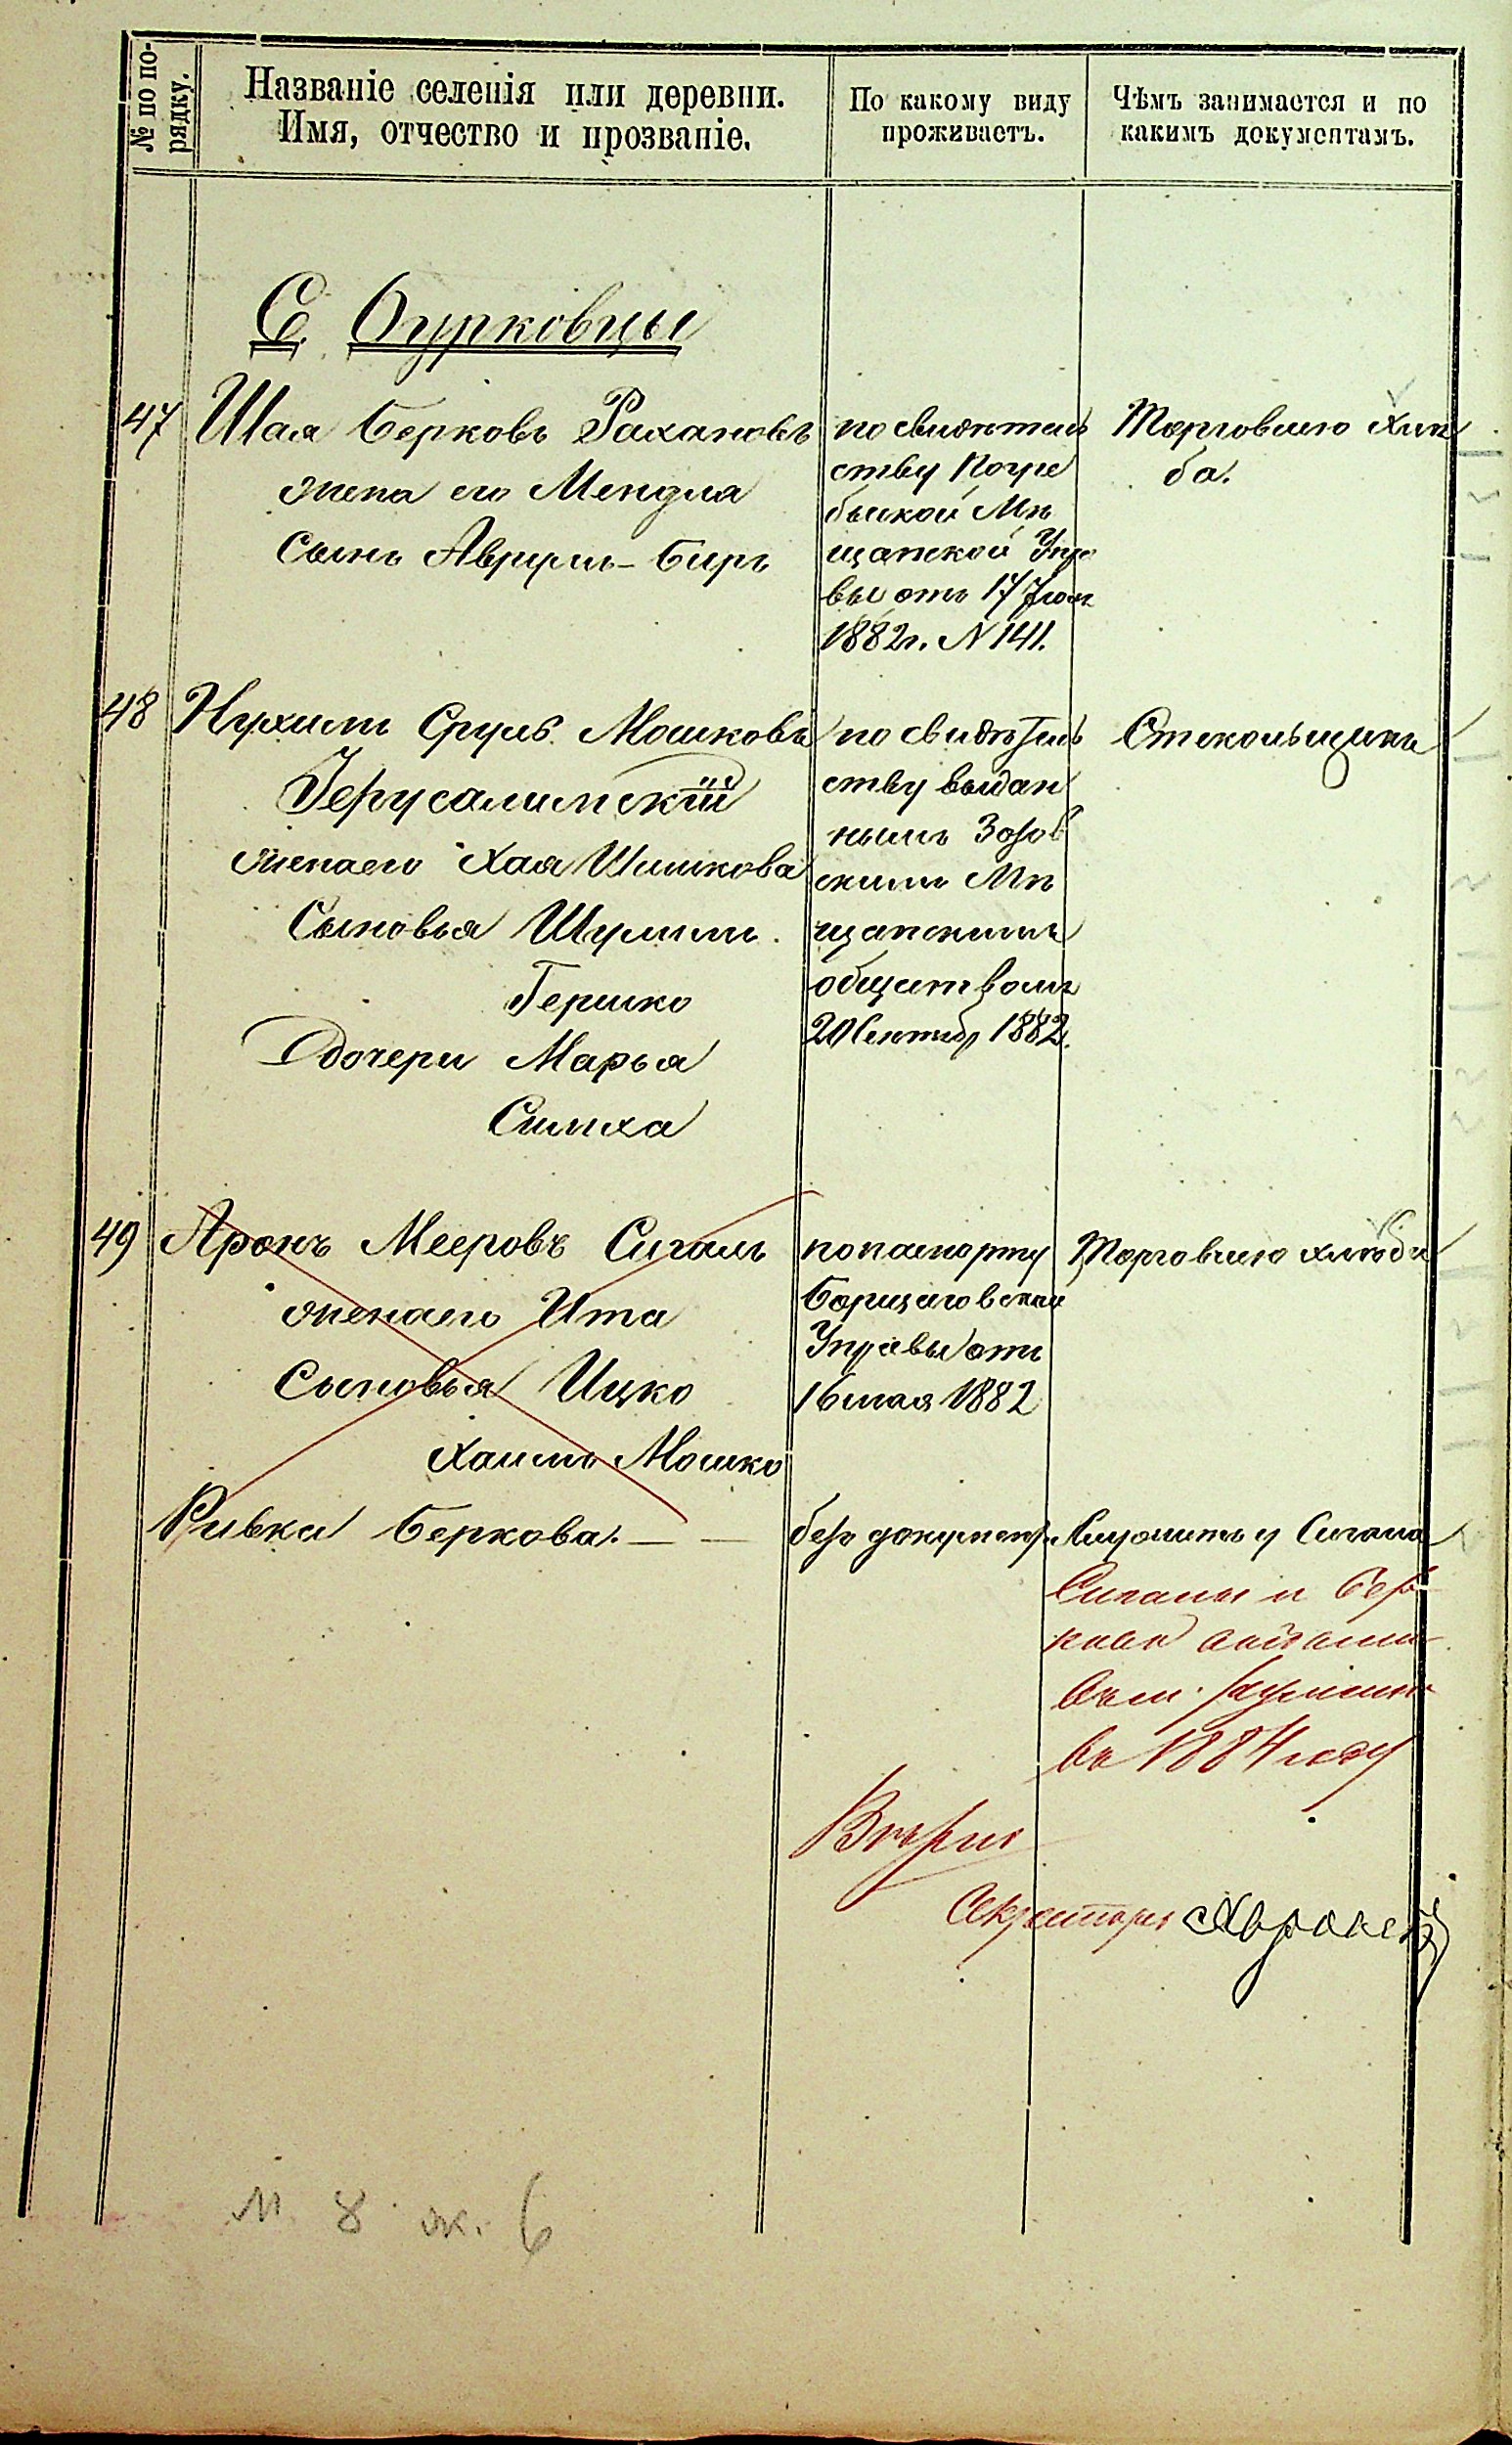 № по по-
рядку.
Названіе селенія или деревни.
Имя, отчество и прозваніе.
По какому виду
проживаетъ.
Чѣмъ занимается и по
какимъ документамъ.
С. Бурковцы
47 Шая Берковъ Рахановъ
жена его Мендля
Сынъ Аврумъ-Беръ
по свидѣтель
ству Погре
быской Мѣ
щанской Упра
вы отъ 17 Іюля
1882г. N 141.
Торговлею хлѣ
ба.
48 Нухимъ Сруль Мошковъ
Іерусалимскій
жена его Хая Шимкова
Сыновья Шулимъ
Гершко
Дочери Марья
Симха
по свидѣтель
ству выдан
нымъ Зозов
скимъ Мѣ
щанскимъ
обществомъ
20 Сентябр 1882.
Стекольщикъ
49 Аронъ Мееровъ Сигалъ
жена его Ита
Сыновья Ицко
Хаимъ Мошко
по паспорту
Борщаговской
Управы отъ
16 мая 1882
Торговлею хлѣба
Ривка Беркова. — —
безъ документ.
Служитъ у Сигала
Сигалы и Бер
кова
въ 1884 году
Вѣрно
Секретарь
М. 8 ж. 6